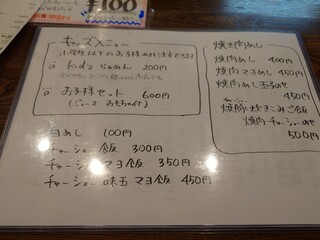 ¥100
キッズメニュー
小学生以下のお子様のみご注文できます
kid's らぁめん 200円
お子様セット 600円
(ジュース・おもちゃ付)
白めし 100円
チャーシュー飯 300円
チャーシューマヨ飯 350円
チャーシュー味玉マヨ飯 450円
焼き肉めし
焼肉めし 400円
焼肉マヨめし 450円
焼肉めし玉子のせ
450円
焼豚炊きこみご飯
焼肉チャーシューのせ
500円